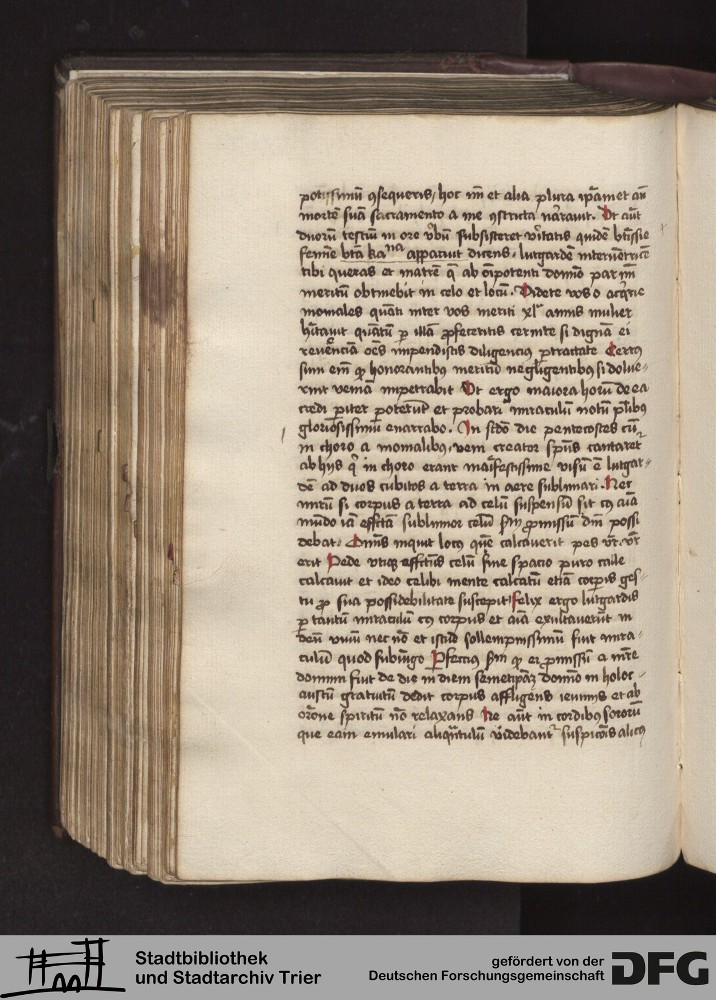 potissimũ ꝯsequeris, hoc iñ et alia plura ip̃amet añ
mortẽ suã sacramento a me ꝯstricta narauit. Ut aũt
duorũ testiũ in ore v̾bũ subsisteret v̾itatis quidẽ
femĩe bt̃a kaᵗⁿᵃ apparuit dicens, lutgardẽ
tibi queras et matrẽ q̃ ab oĩpotenti domĩo par iñ
meritũ obtinebit in celo et locũ. Videte vos o
moniales quãti inter vos meriti xlᵃ annis mulier
h̃itauit quãtũ ꝑ illã ꝓfeceritis cernite si dignã ei
reuerẽciã oẽs impendistis diligencius ꝑtractate Certꝰ
sum eĩ ꝙ honorantibꝰ meritũ negligentibꝰ si dolue-
rint veniã impetrabit Ut ergo maiora horũ de ea
credi ꝑiter poterũt et probari miraculũ notũ pl̃ibꝰ
gloriosissimũ enarrabo. In sc̃do die pentecostes cũ
in choro a monialibꝰ, veni creator sp̃us cantaret᷑
ab hys q̃ in choro erant mãifestissime visũ ẽ lutgar-
dẽ ad duos cubitos a terra in aere sublimari. Nec
mirũ si corpus a terra ad celũ suspensũ sit cꝰ aĩa
mũdo iã effectã sublimior celũ sm̃ ꝓmissũ dñi possi
debat. Om̃is inquit locꝰ quẽ calcauerit pes vr̃. vr̃
erit Pede utiqꝫ affectus celũ sine spacio puro calle
calcauit et ideo celibi mente calcatũ etiã corpis ges-
tu ꝓ sua possidebilitate suscepit Felix ergo lutgardis
ꝑ tantũ miraculũ cꝰ corpus et aĩa exultauerũt in
deũ viuũ nec nõ et istud sollempnissimũ fuit mira-
culũ quod subiũgo Perfectꝰ sm̃ ꝙ ei ꝓmissũ a mr̃e
domini fuit de die in diem semetip̃aꝫ domĩo in holoc-
austũ gratuitũ dedit corpus affligens ieiuniis et ab
or̃one spiritũ nõ relaxans Ne aũt in cordibꝰ sororũ
que eam emulari aliqũtulũ videbant᷑ suspic̃ois alicꝰ
Stadtbibliothek
und Stadtarchiv Trier
gefördert von der
Deutschen Forschungsgemeinschaft
DFG